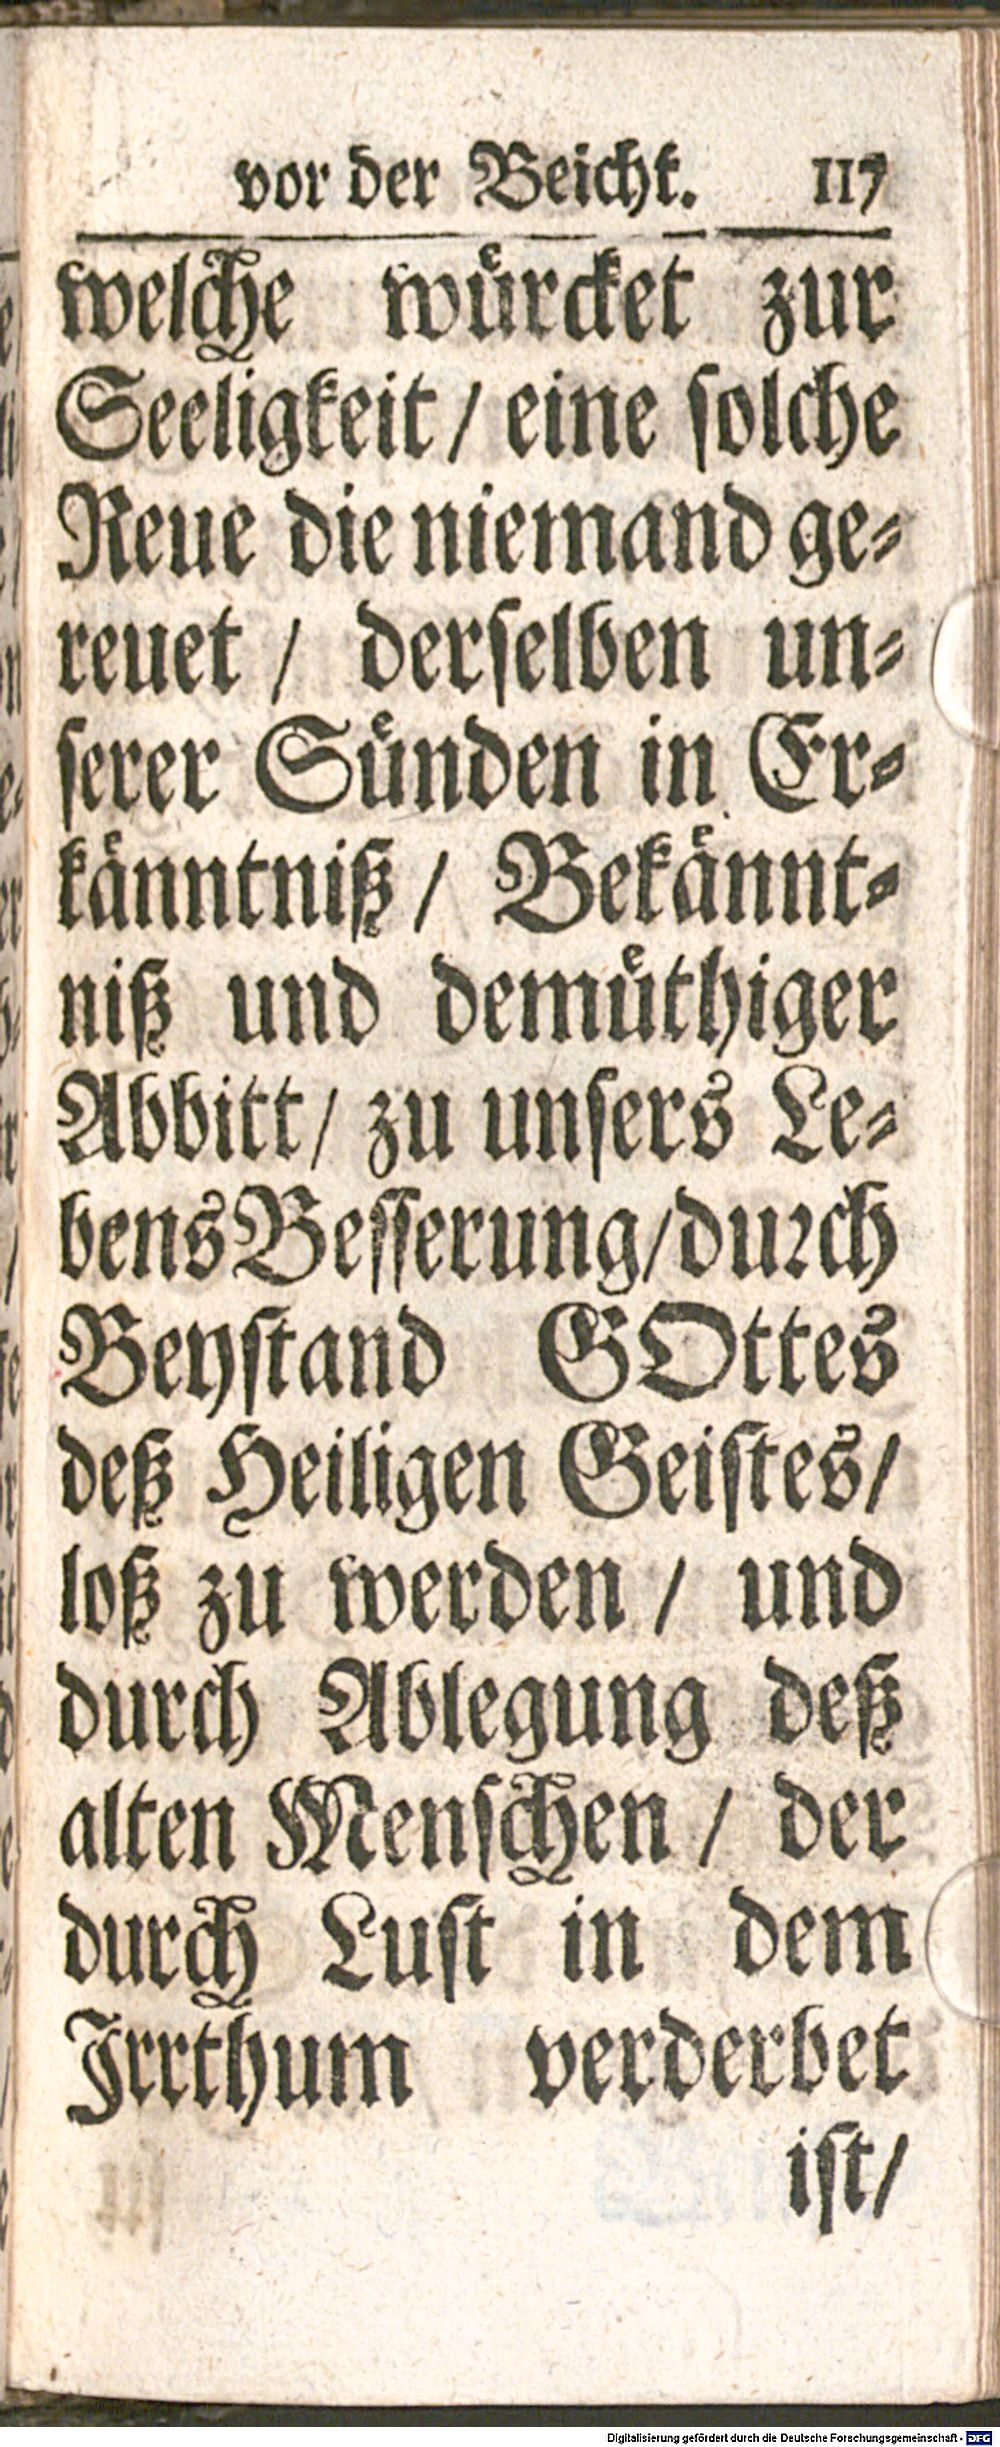 vor der Beicht. 117
welche würcket zur
Seeligkeit / eine solche
Reue die niemand ge⸗
reuet / derselben un⸗
serer Sünden in Er⸗
känntniß / Bekännt⸗
niß und demüthiger
Abbitt / zu unsers Le⸗
bens Besserung / durch
Beystand GOttes
deß Heiligen Geistes /
loß zu werden / und
durch Ablegung deß
alten Menschen / der
durch Lust in dem
Irrthum verderbet
ist /
Digitalisierung gefördert durch die Deutsche Forschungsgemeinschaft - DFG